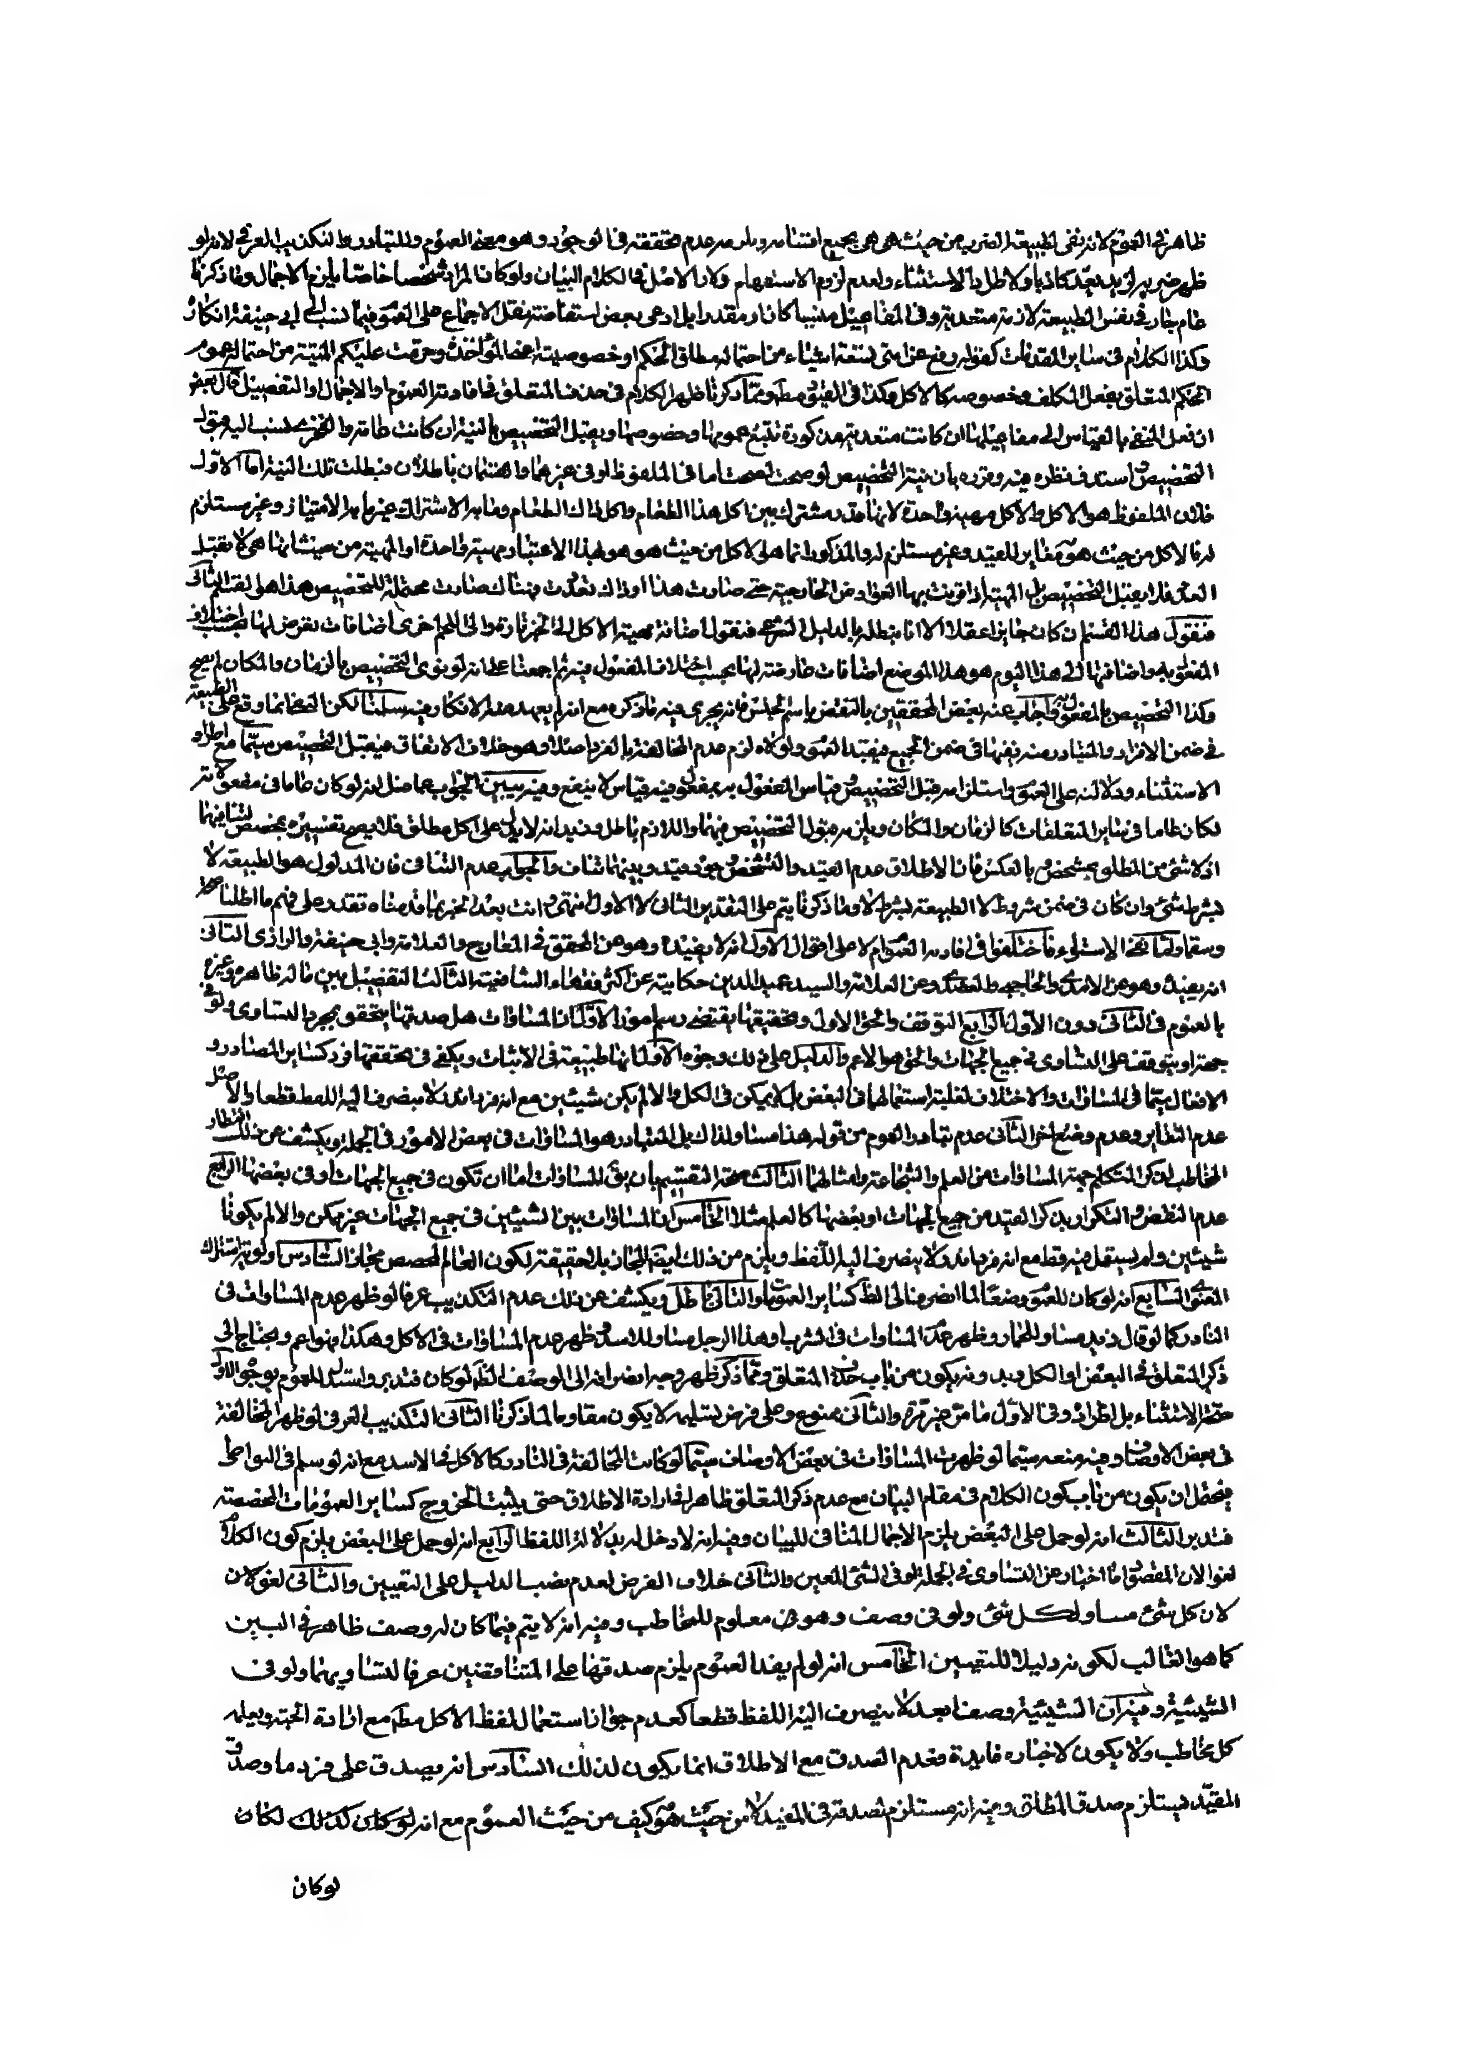 ظاهر في العموم لانه نفى لطبيعة الضرب من حيث هي هي بجميع افتنائه ويلزمه عدم تحققه في الوجود وهو معنى العموم وللتبادر والتكذيب العرفي لانه لو
ظهر ضربه لزيد يعد كاذبا ولاطراد الاستثناء ولعدم لزوم الاستفهام ولان الاصل في الكلام البيان ولو كان المراد شخصا خاصا يلزم الاجمال وما ذكرنا
عام جار في نفس الطبيعة لازمة متعدية وفي المفاعيل منسيا كان او مقدرا بل ادعى بعض استفاضة نقل الاجماع على العموم فيما نسب الى ابي حنيفة انكاره
وكذا الكلام في ساير المقدرات كقوله رفع عن امتي تسعة اشياء من احتماله مطلق الحكم او خصوصية المؤاخذة وحرمت عليكم الميتة من احتماله عموم
الحكم المتعلق بفعل المكلف وخصوصه كالاكل وكذا في الفيئ مطلقا ومما ذكرنا ظهر الكلام في حذف المتعلق في افادته العموم او الاجمال او التفصيل قال بعض
ان فعل المنفي بالقياس الى مفاعيلها ان كانت متعدية مذكورة تتبع عمومها وخصوصها ويقبل التخصيص بالنية ان كانت عامة والفخري نسب اليه قبول
التخصيص واسند في نظره فيه وقرره بان نية التخصيص لو صحت لصحت اما في الملفوظ او في غيره وهما والقسمان باطلان فبطلت تلك النية اما الاول
فلان الملفوظ هو الاكل والاكل مهية واحدة لانها قدر مشترك بين اكل هذا الطعام واكل ذاك الطعام وما به الاشتراك غير ما به الامتياز وغير مستلزم
له فالاكل من حيث هو مغاير للقيد وغير مستلزم له والمذكور انما هو الاكل من حيث هو هو لهذا الاعتبار مهية واحدة والمهية من حيث انها هي لا يقبل
العدد فلا يقبل التخصيص بل المهية اذا قرنت بها العوارض الخارجية حتى صارت هذا او ذاك تعددت فهناك صارت محتملة للتخصيص هذا هو القسم الثاني
فنقول هذا القسم ان كان جايزا عقلا الا انا نبطله بالدليل الشرعي فنقول اضافة مهية الاكل الى الخبز تارة والى اللحم اخرى اضافات تعرض لها بحسب اختلاف
المفعول به واضافتها الى هذا اليوم وهذا الموضع اضافات عارضة لها بحسب اختلاف المفعول فيه ثم اجمعنا على انه لو نوى التخصيص بالزمان والمكان لم يصح
وكذا التخصيص بالمفعول به واجاب عنه بعض المحققين بالنقض باسم الجنس فانه يجرى فيه ما ذكره مع انه لم يعهد منه الانكار فيه سلمنا لكن النفي انما وقع على الطبيعة
في ضمن الافراد والمتبادر منه نفيها في ضمن الجميع فيفيد العموم ولولاه لزم عدم المخالفة بالفرد اصلا وهو خلاف الاتفاق فيقبل التخصيص سيما مع اطراد
الاستثناء ودلالته على العموم واستلزامه قبل التخصيص وقياس المفعول به بمفعول فيه قياس لا ينفع وفيه يبين الجواب عما ضل انه لو كان عاما في مفعولاته
لكان عاما في ساير المتعلقات كالزمان والمكان ويلزمه قبول التخصيص فيهما واللازم باطل وفيه انه لا يدل على اكل مطلق فلا يصح تفسيره بمخصص لتنافيهما
اذ لا شئ من المطلق بمشخص وبالعكس فان الاطلاق عدم القيد والتشخص وجود قيد وبينهما تناف والجواب عدم التنافي فان المدلول هو الطبيعة لا
بشرط شئ وان كان في ضمن مشروط لا الطبيعة بشرط لا وما ذكرنا يتم على التقدير الثاني لا الاول فتمتحى وانت بعد الخبر بما قدمناه تقدر على فهم ما اطلنا
وسقاولتنا نفى الاستواء فاختلفوا في افادته العموم لا على اقوال الاول انه لا يفيده وهو من المحقق في المعارج والعلامة وابي حنيفة والرازي الثاني
انه يفيد وهو من الامدي والحاجبي والعضدي وعن العلامة والسيد عميد الدين حكايته عن اكثر فقهاء الشافعية الثالث التفصيل بين ما له ظاهر وغيره
بالعموم في الثاني دون الاول الرابع التوقف والحق الاول وتحقيقها يقتضي رسم امور الاول ان المساوات هل صدقها يتحقق بمجرد التساوي ولو في
جهة او يتوقف على التساوي في جميع الجهات والحق هو الاعم والدليل على ذلك وجوه الاول انها طبيعة في الاثبات ويكفي في تحققها فرد كساير المصادر و
الافعال سيما في المساوات والاختلاف لغلبة استعمالهما في البعض بل لا يمكن في الكل والا لم يكن شيئين مع انه فرد نادر لا ينصرف اليه اللفظ قطعا والاصل
عدم التغاير وعدم وضع اخر الثاني عدم تبادر العموم من قوله هذا مساو لذاك بل المتبادر هو المساوات في بعض الامور في الجملة ويكشف عن ذلك انتظار
المخاطب لذكر المتكلم جهة المساوات من العلم والشجاعة وامثالهما الثالث صحة التقسيم بان يق المساوات اما ان تكون في جميع الجهات او في بعضها الرابع
عدم التناقض والتكرار بذكر القيد من جميع الجهات او بعضها كالعلم مثلا الخامس ان المساوات بين الشيئين في جميع الجهات غير ممكن والا لم يكونا
شيئين ولم يستعمل فيه قط مع انه فرد نادر لا ينصرف اليه اللفظ ويلزم من ذلك ايضا المجاز بلا حقيقة لكون العام المخصص مجازا السادس اولوية اشتراك
المعنوي السابع انه لو كان للعموم وضعا لما انصرفنا الى الظ كساير العمومات والتالي باطل ويكشف عن ذلك عدم التكذيب عرفا لو ظهر عدم المساوات في
النادر كما لو قال زيد مساو للحمار وظهر عدم المساوات في الشرب او هذا الرجل مساو للاسد وظهر عدم المساوات في الاكل وهكذا فهو اعم ويحتاج الى
ذكر المتعلق في البعض او الكل وبدونه يكون من باب حذف المتعلق ومما ذكر ظهر وجه انصرافه الى الوصف الظاهر لو كان فتدبر واستدل للعموم بوجوه الاول
صحة الاستثناء بل اطراده وفي الاول ما مر غير مرة والثاني ممنوع وعلى فرض تسليمه لا يكون مقاوما لما ذكرنا الثاني التكذيب العرفي لو ظهر المخالفة
في بعض الاوصاف وفيه منعه سيما لو ظهرت المساوات في بعض الاوصاف سيما لو كانت المخالفة في النادر كالاكل في الاسد مع انه لو سلم في البواقي
فيحتمل ان يكون من باب كون الكلام في مقام البيان مع عدم ذكر المتعلق ظاهرا في ارادة الاطلاق حتى يثبت الخروج كساير العمومات المخصصة
فتدبر الثالث انه لو حمل على البعض يلزم الاجمال المنافي للبيان وفيه انه لا دخل له بدلالة اللفظ الرابع انه لو حمل على البعض يلزم كون الكلام
لغوا لان المقصود اما اخبار عن التساوي في الجملة او في الشئ المعين والثاني خلاف الفرض لعدم نصب الدليل على التعيين والثاني لغو لان
لان كل شئ مساو لكل شئ ولو في وصف وهو في معلوم للمخاطب وفيه انه لا يتم فيما كان له وصف ظاهر في البين
كما هو الغالب لكونه دليلا للتعيين الخامس انه لو لم يفد العموم يلزم صدقها على المتناقضين عرفا لتساويهما ولو في
الشيئية وفيه ان الشيئية وصف ابعد لا ينصرف اليه اللفظ قطعا كعدم جواز استعمال لفظ الاكل مطلقا مع ارادة الحبة ويعلمه
كل مخاطب ولا يكون لاخباره فايدة فعدم الصدق مع الاطلاق انما يكون لذلك السادس انه يصدق على فرد ما وصدق
المقيد يستلزم صدق المطلق وفيه انه مستلزم لصدقه في المقيد لا من حيث هو كيف من حيث العموم مع انه لو كان كذلك لكان
لو كان